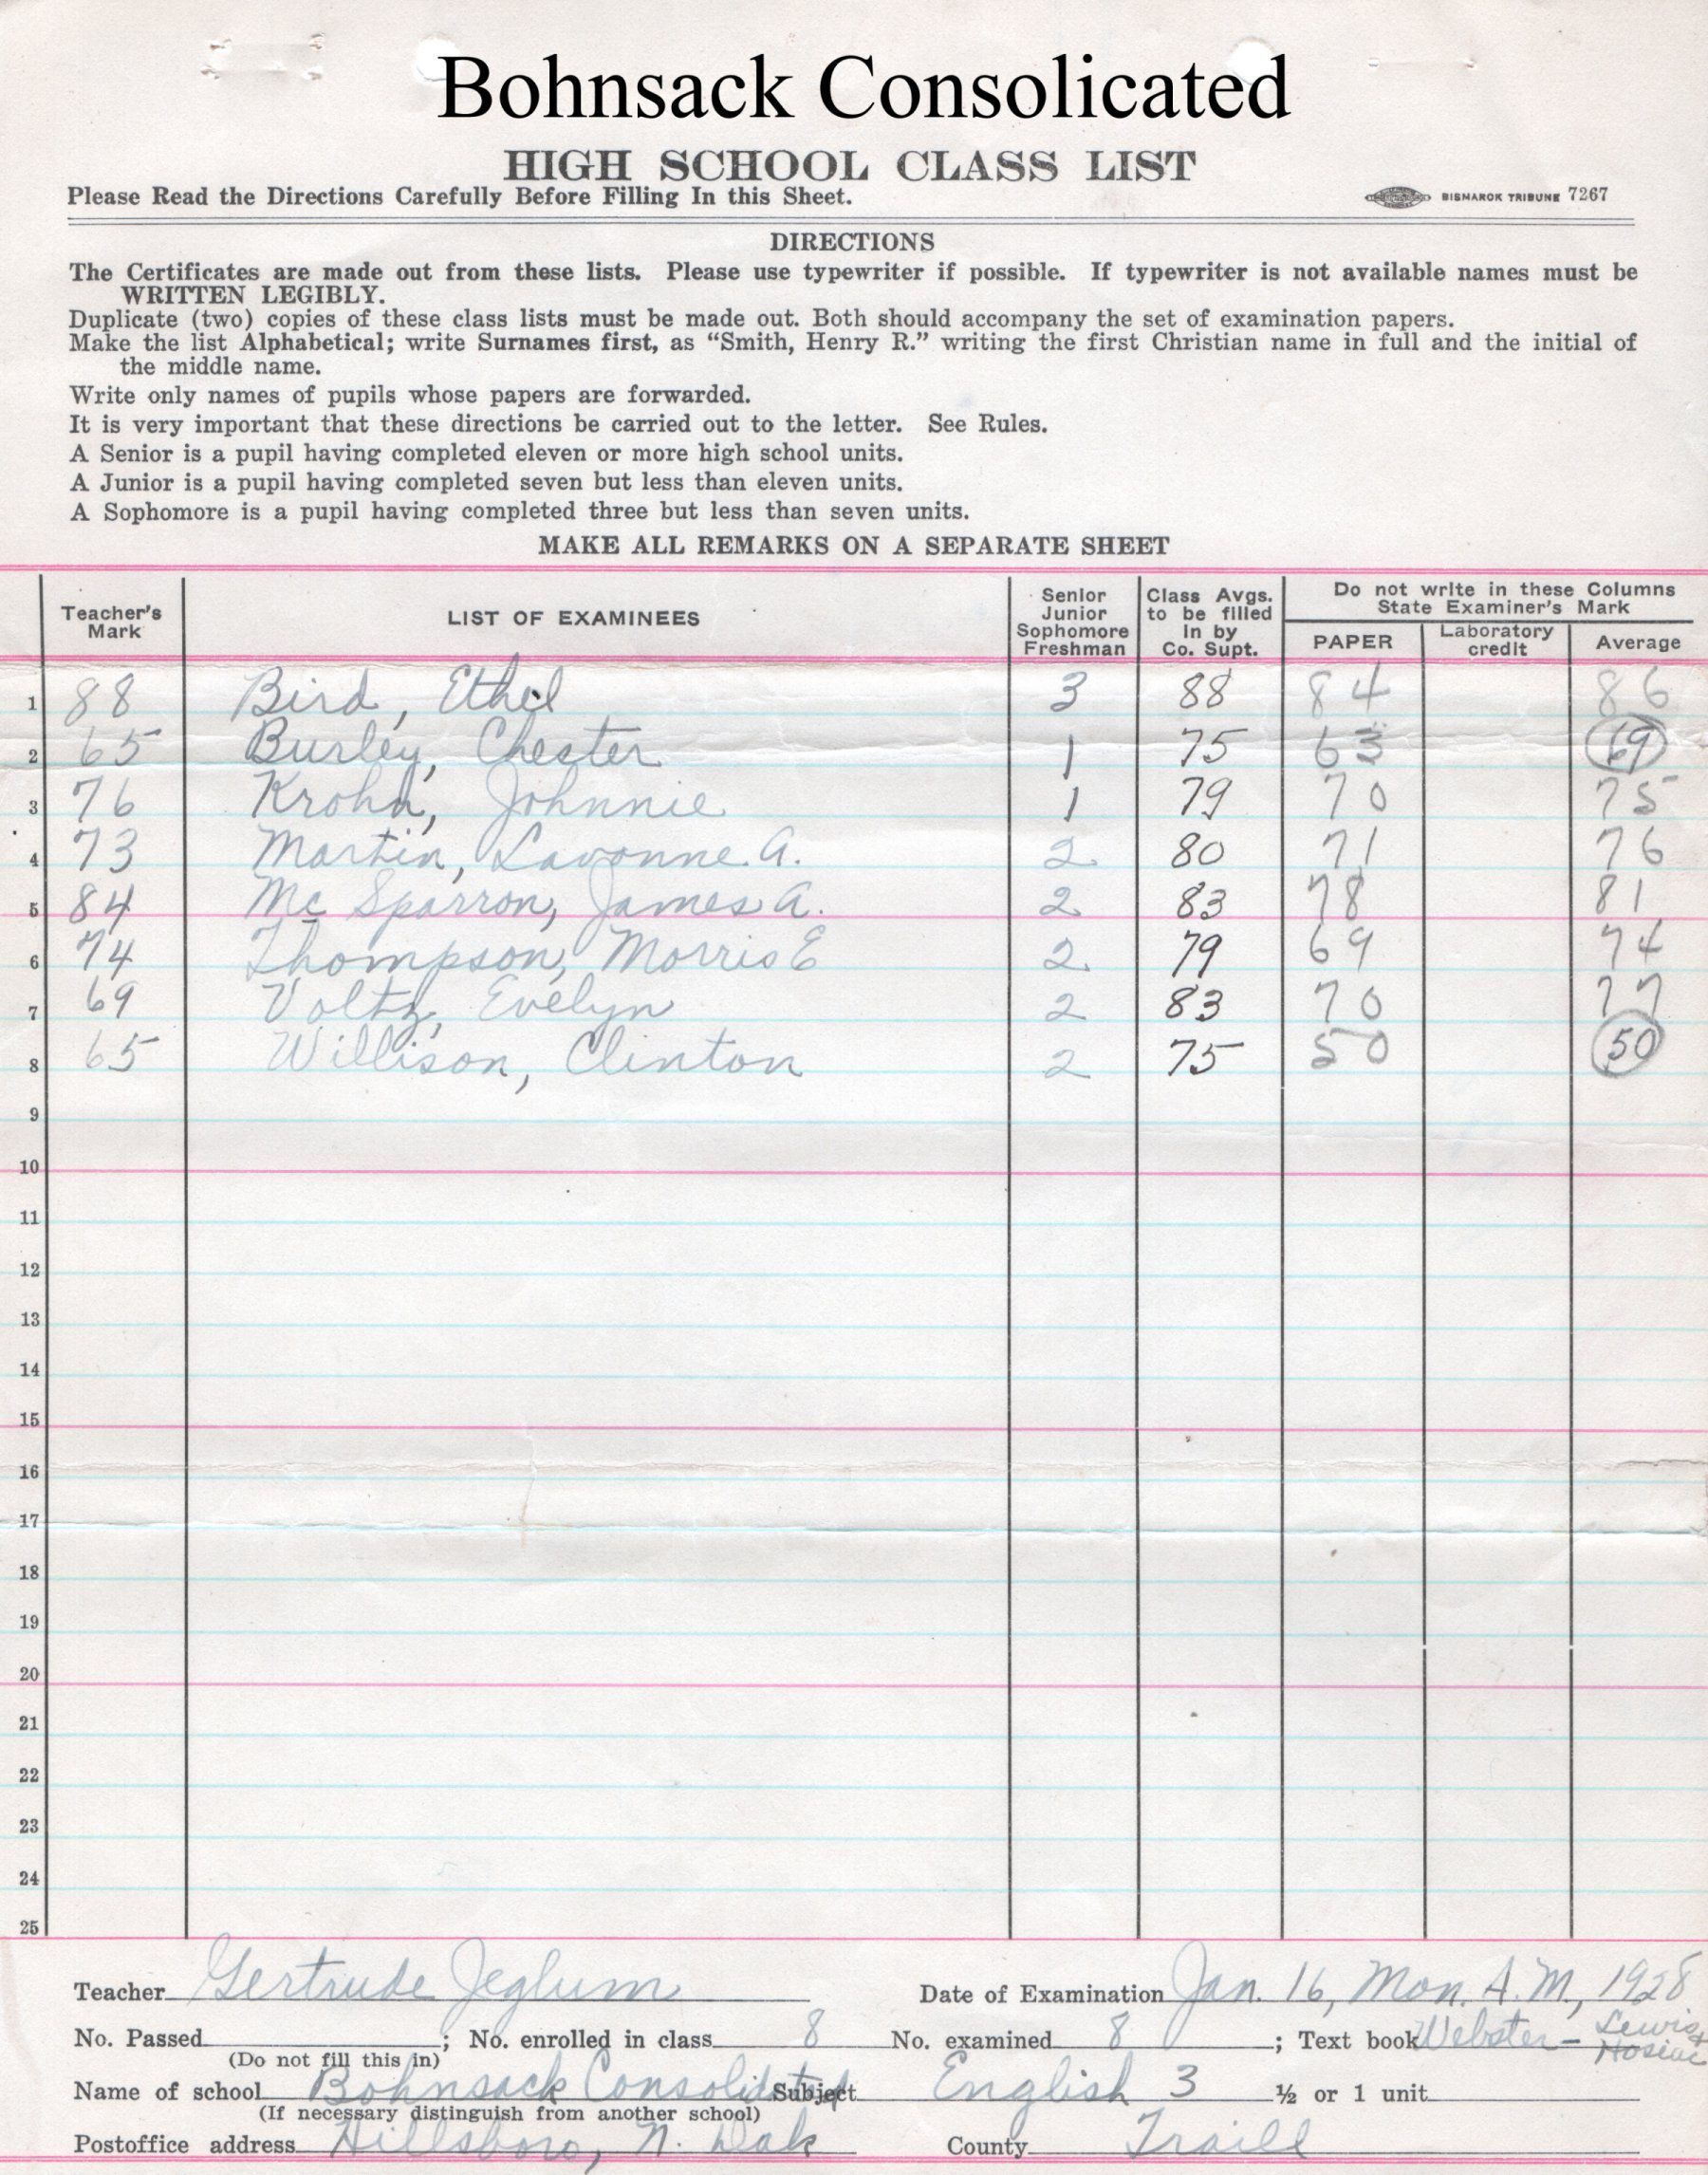 Bohnsack Consolicated
HIGH SCHOOL CLASS LIST
Please Read the Directions Carefully Before Filling In this Sheet. BISMARCK TRIBUNE 7267
DIRECTIONS
The Certificates are made out from these lists. Please use typewriter if possible. If typewriter is not available names must be
WRITTEN LEGIBLY.
Duplicate (two) copies of these class lists must be made out. Both should accompany the set of examination papers.
Make the list Alphabetical; write Surnames first, as “Smith, Henry R.” writing the first Christian name in full and the initial of
the middle name.
Write only names of pupils whose papers are forwarded.
It is very important that these directions be carried out to the letter. See Rules.
A Senior is a pupil having completed eleven or more high school units.
A Junior is a pupil having completed seven but less than eleven units.
A Sophomore is a pupil having completed three but less than seven units.
MAKE ALL REMARKS ON A SEPARATE SHEET
Teacher's Mark LIST OF EXAMINEES Senior Junior Sophomore Freshman Class Avgs. to be filled In by Co. Supt. Do not write in these Columns State Examiner's Mark PAPER Laboratory credit Average
1 88 Bird, Ethel 3 88 84 86
2 65 Burley, Chester 1 75 63 69
3 76 Krohn, Johnnie 1 79 70 75
4 73 Martin, Lavonne A. 2 80 71 76
5 84 Mc Sparron, James A. 2 83 78 81
6 74 Thompson, Morris E 2 79 69 74
7 69 Voltz, Evelyn 2 83 70 77
8 65 Willison, Clinton 2 75 50 50
9
10
11
12
13
14
15
16
17
18
19
20
21
22
23
24
25
Teacher Gertrude Jeglum Date of Examination Jan. 16, Mon. A.M., 1928
No. Passed ; No. enrolled in class 8 No. examined 8 ; Text book Webster – Lewis &
(Do not fill this in)
Name of school Bohnsack Consolidated Subject English 3 ½ or 1 unit
(If necessary distinguish from another school)
Postoffice address Hillsboro, N. Dak County Traill